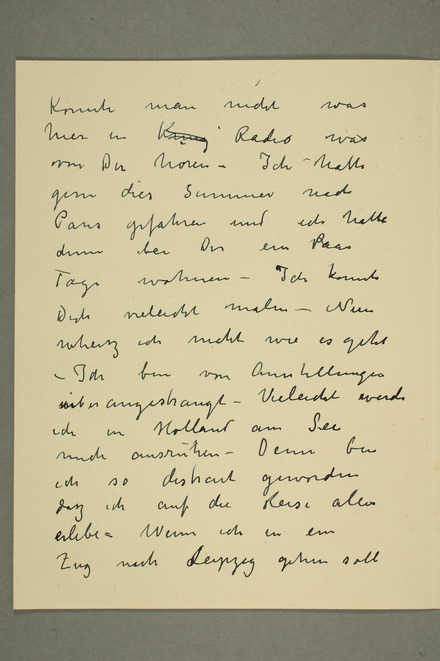 Könnte man nicht was
hier in Radio was
von Dir hören – Ich hatte
gern dies Summer nach
Paris gefahren und ich hatte
dann bei Dir ein Paar
Tage wohnen – Ich konnte
Dich vieleicht malen – Nun
ich nicht wie es geht
– Ich bin von Ausstellungen
überangestrangt – Vieleicht werde
ich in Holland am See
mich ausruhen – Denn bin
ich so distrait geworden
dasz ich auf die Reise alles
erlebe – Wenn ich in ein
Zug nach Leipzig gehen soll